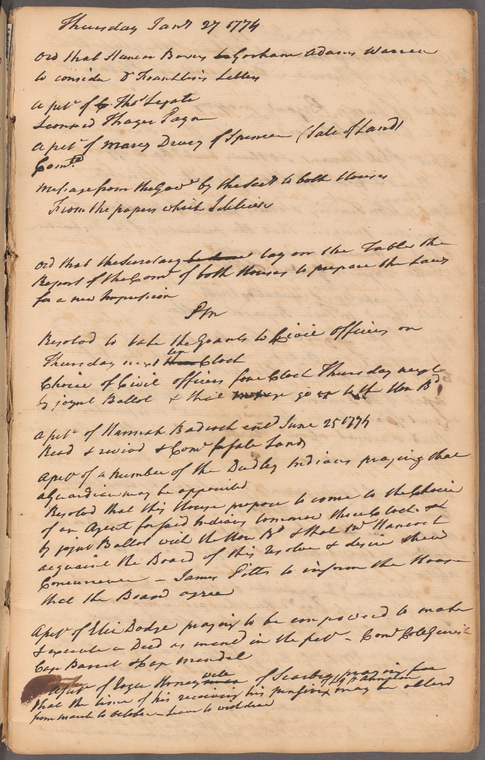 Thursday Jany 27 1774
Ord that Hancoc Bowers Gorham Adams Warren
to consider Dr Franklins Letters
A petn of Thos Legate
Leonard Thayer Page
A petn of Marcy Dewey of Spencer (Sale of Land)
Comtd
Message from the Govr by the Secy to both Houses
From the papers which I deliver
Ord that the Secretary lay on the Table the
Report of the Comte of both Houses to prepare the Laws
for a new Impression
PM
Resolvd to take the Grants to Civil officers on
Thursday next Clock
Choice of Civil officers four Clock Thursday next
by joynt Ballot & that go up to the Hon Bd
A petn of Hannah Badcock June 25 1774
Read & revivd & Comd Land
A petn of a number of the Dudley Indians praying that
a Guardian may be appointed
Resolved that this House propose to come to the Choice
of an Agent for said Indians tomorrow three Clock
by joynt Ballot with the Hon Bd & that Mr Hancock
acquaint the Board of this resolve & desire their
Concurrence - James Pitts to inform the House
that the Board agree
A petn of Eli Dodge praying to be impowered to make
& execute a Deed as mend in the petn - Comd Col Gerrish
Cap Barret & Cap
A petn of of praying
that the time of his receiving his pension may be alterd
from march to october - leave to withdraw